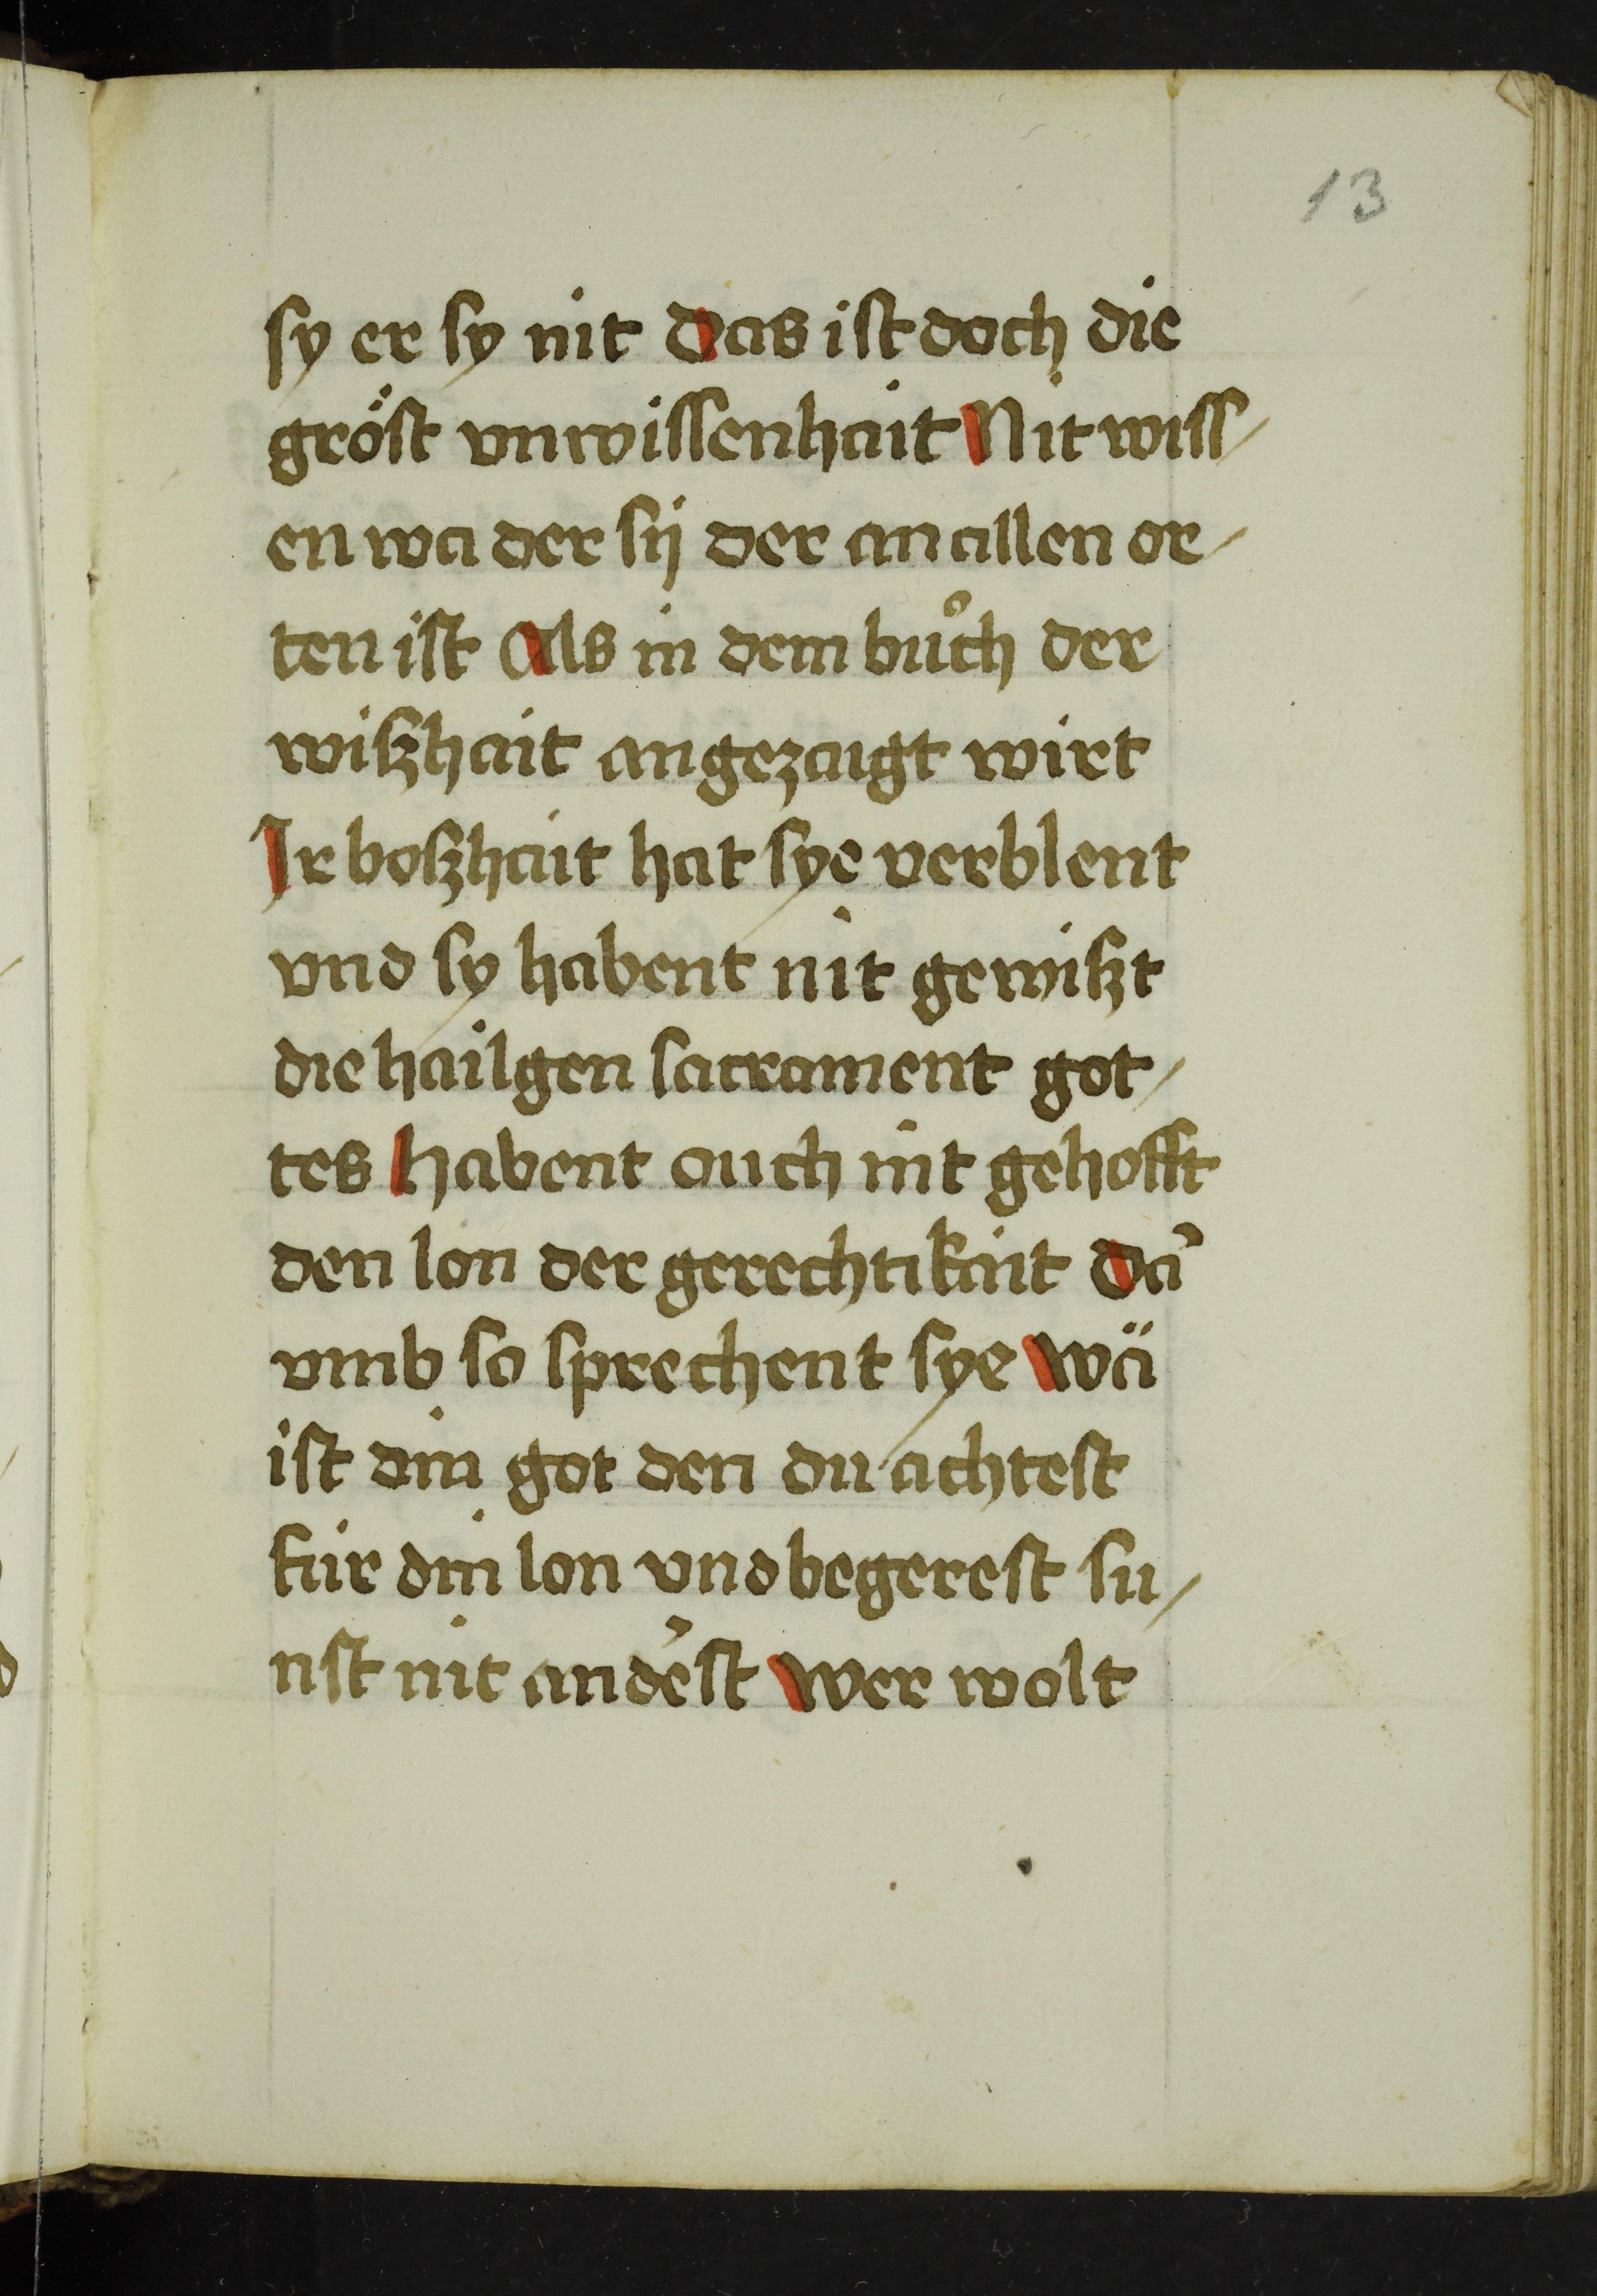 13
sy er sy nit Das ist doch die
gröst vnwissenhait Nit wiss/
en wa der sij der an allen or/
ten ist Als in dem buͦch der
wiszhait angezaigt wirt
Ir boszhait hat sye verblent
vnd sy habent nit gewiszt
die hailgen sacrament got/
tes habent ouch nit gehofft
den lon der gerechtikait Da᷑
vmb so sprechent sye Wä
ist din got den du achtest
für din lon vnd begerest su/
nst nit ande᷑st Wer wolt